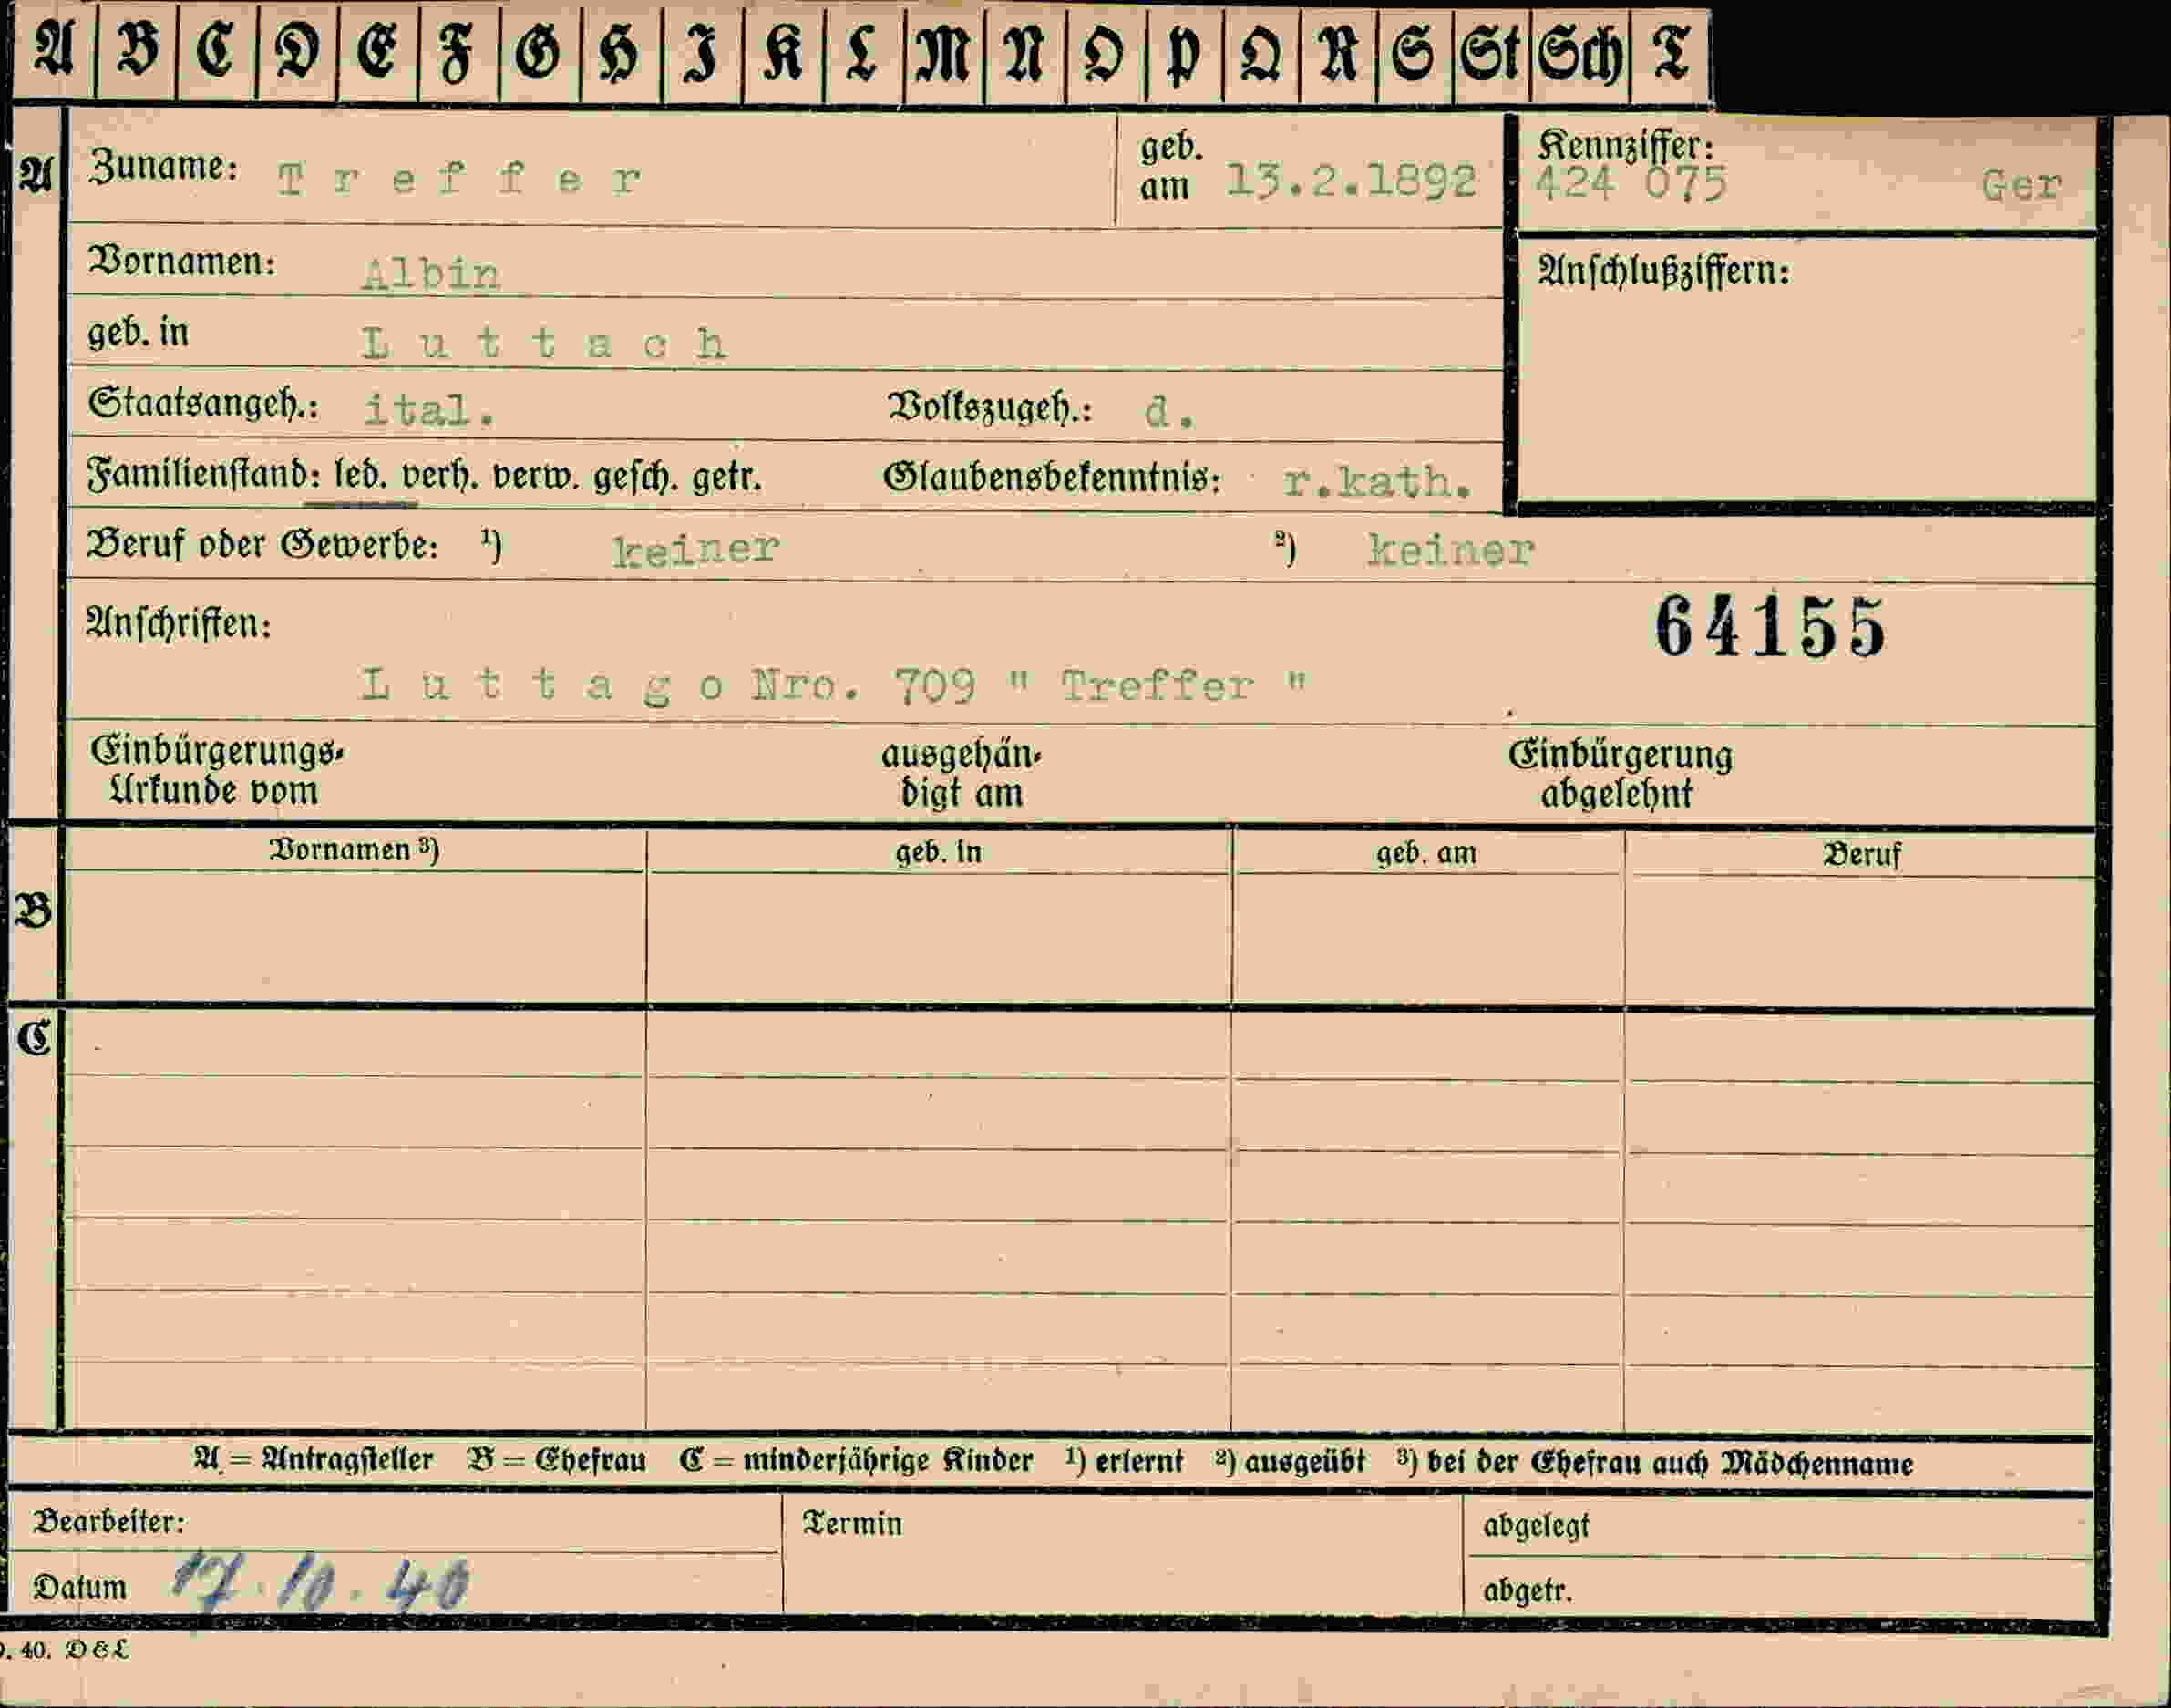 A B C D E F G H I K L M N O P Q R S St Sch T
A Zuname: Treffer geb. am 13.2.1892 Kennziffer: 424 075 Ger
Vornamen: Albin Anschlußziffern:
geb. in Luttach
Staatsangeh.: ital. Volkszugeh.: d.
Familienstand: led. verh. verw. gesch. getr. Glaubensbekenntnis: r.kath.
Beruf oder Gewerbe: ¹) keiner ²) keiner
Anschriften: 64155
Luttago Nro. 709 " Treffer "
Einbürgerungs- ausgehän- Einbürgerung
Urkunde vom digt am abgelehnt
Vornamen ³) geb. in geb. am Beruf
B
C
A = Antragsteller B = Ehefrau C = minderjährige Kinder ¹) erlernt ²) ausgeübt ³) bei der Ehefrau auch Mädchenname
Bearbeiter: Termin abgelegt
Datum 17.10.40 abgetr.
. 40. D&L